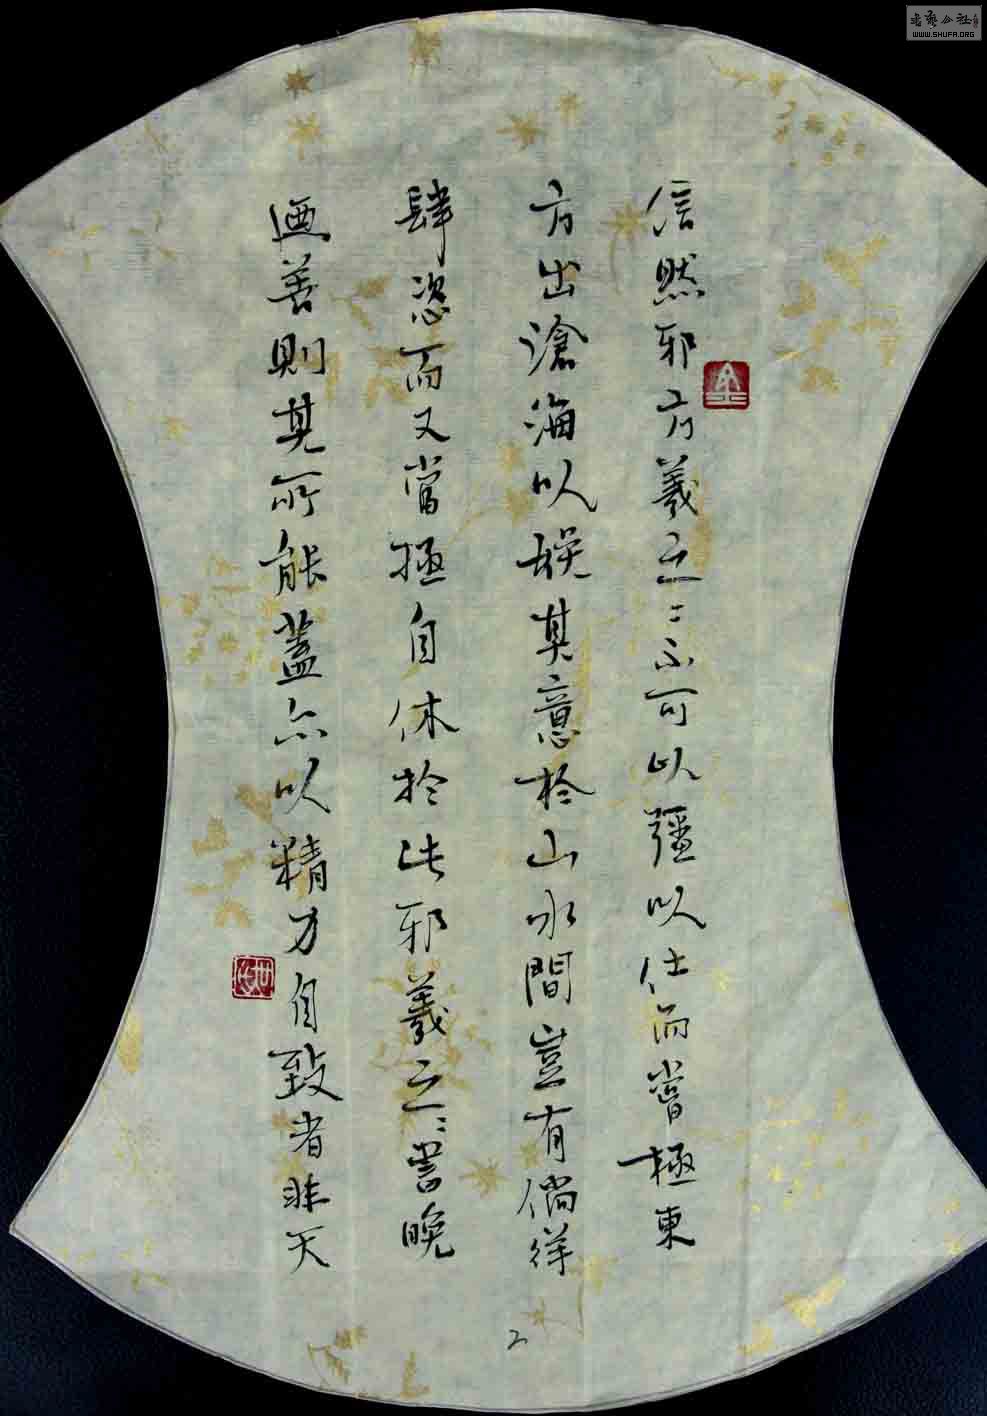 信然邪方羲之之不可以彊以仕而嘗極東
方出滄海以娛其意於山水間豈有徜徉
肆恣而又嘗極自休於此邪羲之之書晚
迺善則其所能蓋亦以精力自致者非天
2
WWW.SHUFA.ORG